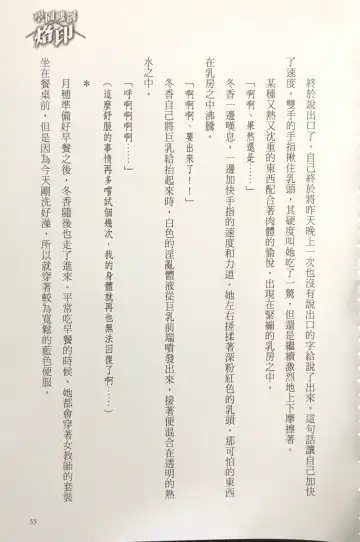 烙印
終於說出口了。自己終於將昨天晚上一次也沒有說出口的字給說了出來。這句話讓自己加快
了速度,雙手的手指揪住乳頭,其硬度叫她吃了一驚,但還是繼續激烈地上下摩擦著。
某種又熱又沈重的東西配合著肉體的愉悅,出現在緊繃的乳房之中。
「啊啊、果然還是……」
冬香一邊嘆息,一邊加快手指的速度和力道。她左右搓揉著深粉紅色的乳頭,那可怕的東西
在乳房之中沸騰。
「啊啊啊、要出來了!!」
冬香自己將巨乳給抬起來時,白色的淫亂體液從巨乳前端噴發出來,接著便混合在透明的熱
水之中。
「呼啊啊啊啊……」
(這麼舒服的事情再多嚐試個幾次,我的身體就再也無法回復了啊……)
*
月穗準備好早餐之後,冬香隨後也走了進來。平常吃早餐的時候,她都會穿著女教師的套裝
坐在餐桌前,但是因為今天剛洗好澡,所以就穿著較為寬鬆的藍色便服。
55